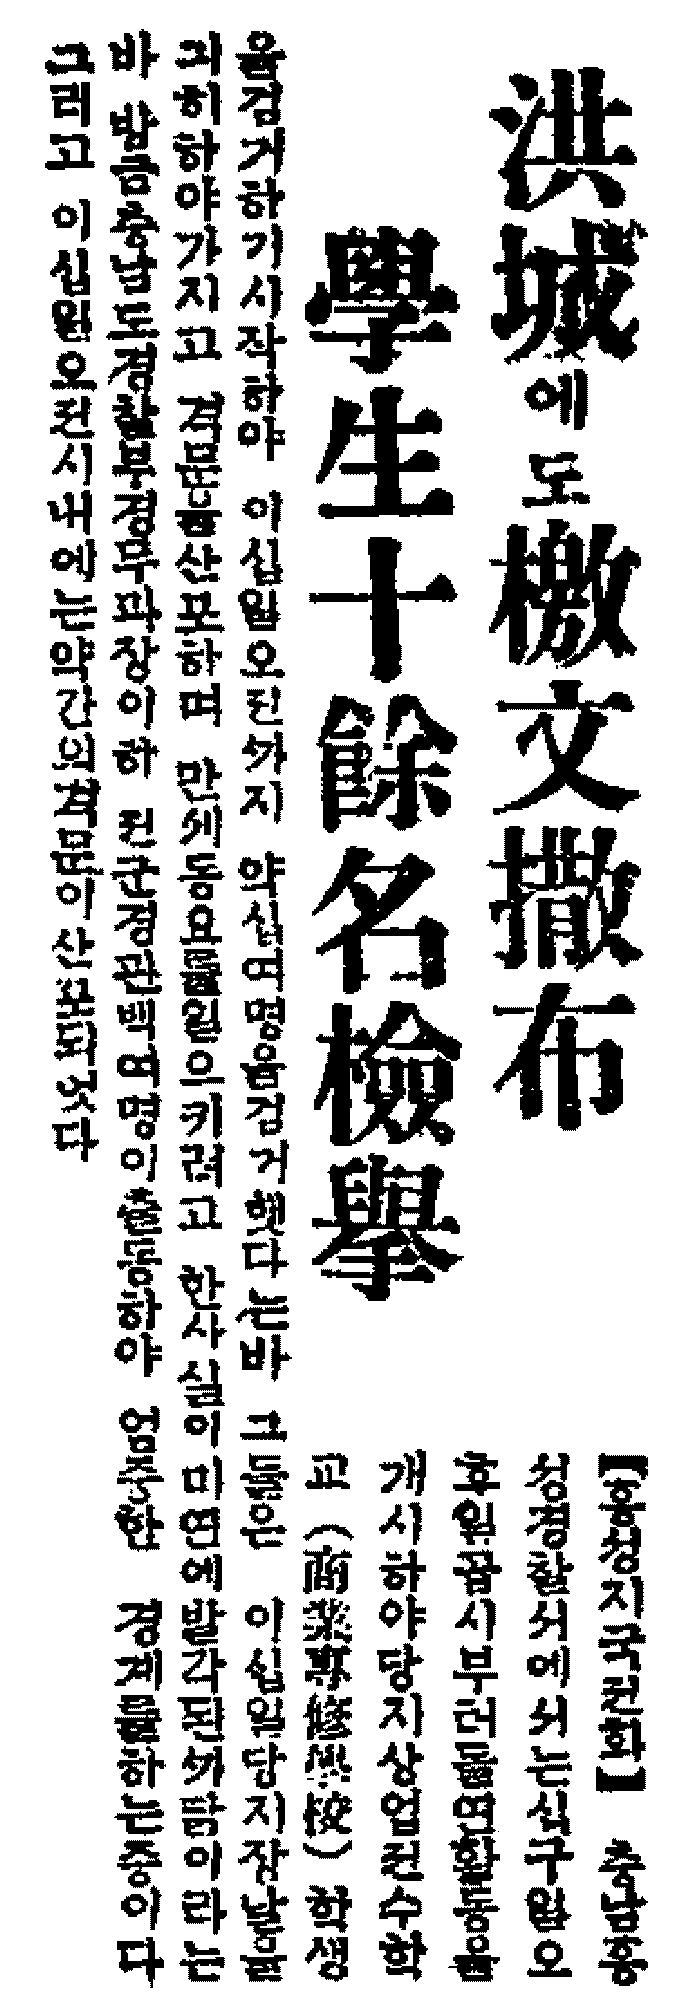 洪城에도檄文撒布
學生十餘名檢擧
【홍성지국전화】 충남홍
성경찰서에서는십구일오
후일곱시부터돌연활동을
개시하야당지상업전수학
교(商業專修學校)학생
을검거하기시작하야 이십일오전ᄭᅡ지 약십여명을검거햇다는바 그들은 이십일당지장날을
긔회하야가지고 격문을산포하며 만세동요를일으키려고 한사실이 미연에발각된ᄭᅡ닭이라는
바 방금충남도경찰부경무과장이하 전군경관백여명이출동하야 엄중한 경계를하는중이다
그리고 이십일오전시내에는약간의격문이산포되엿다